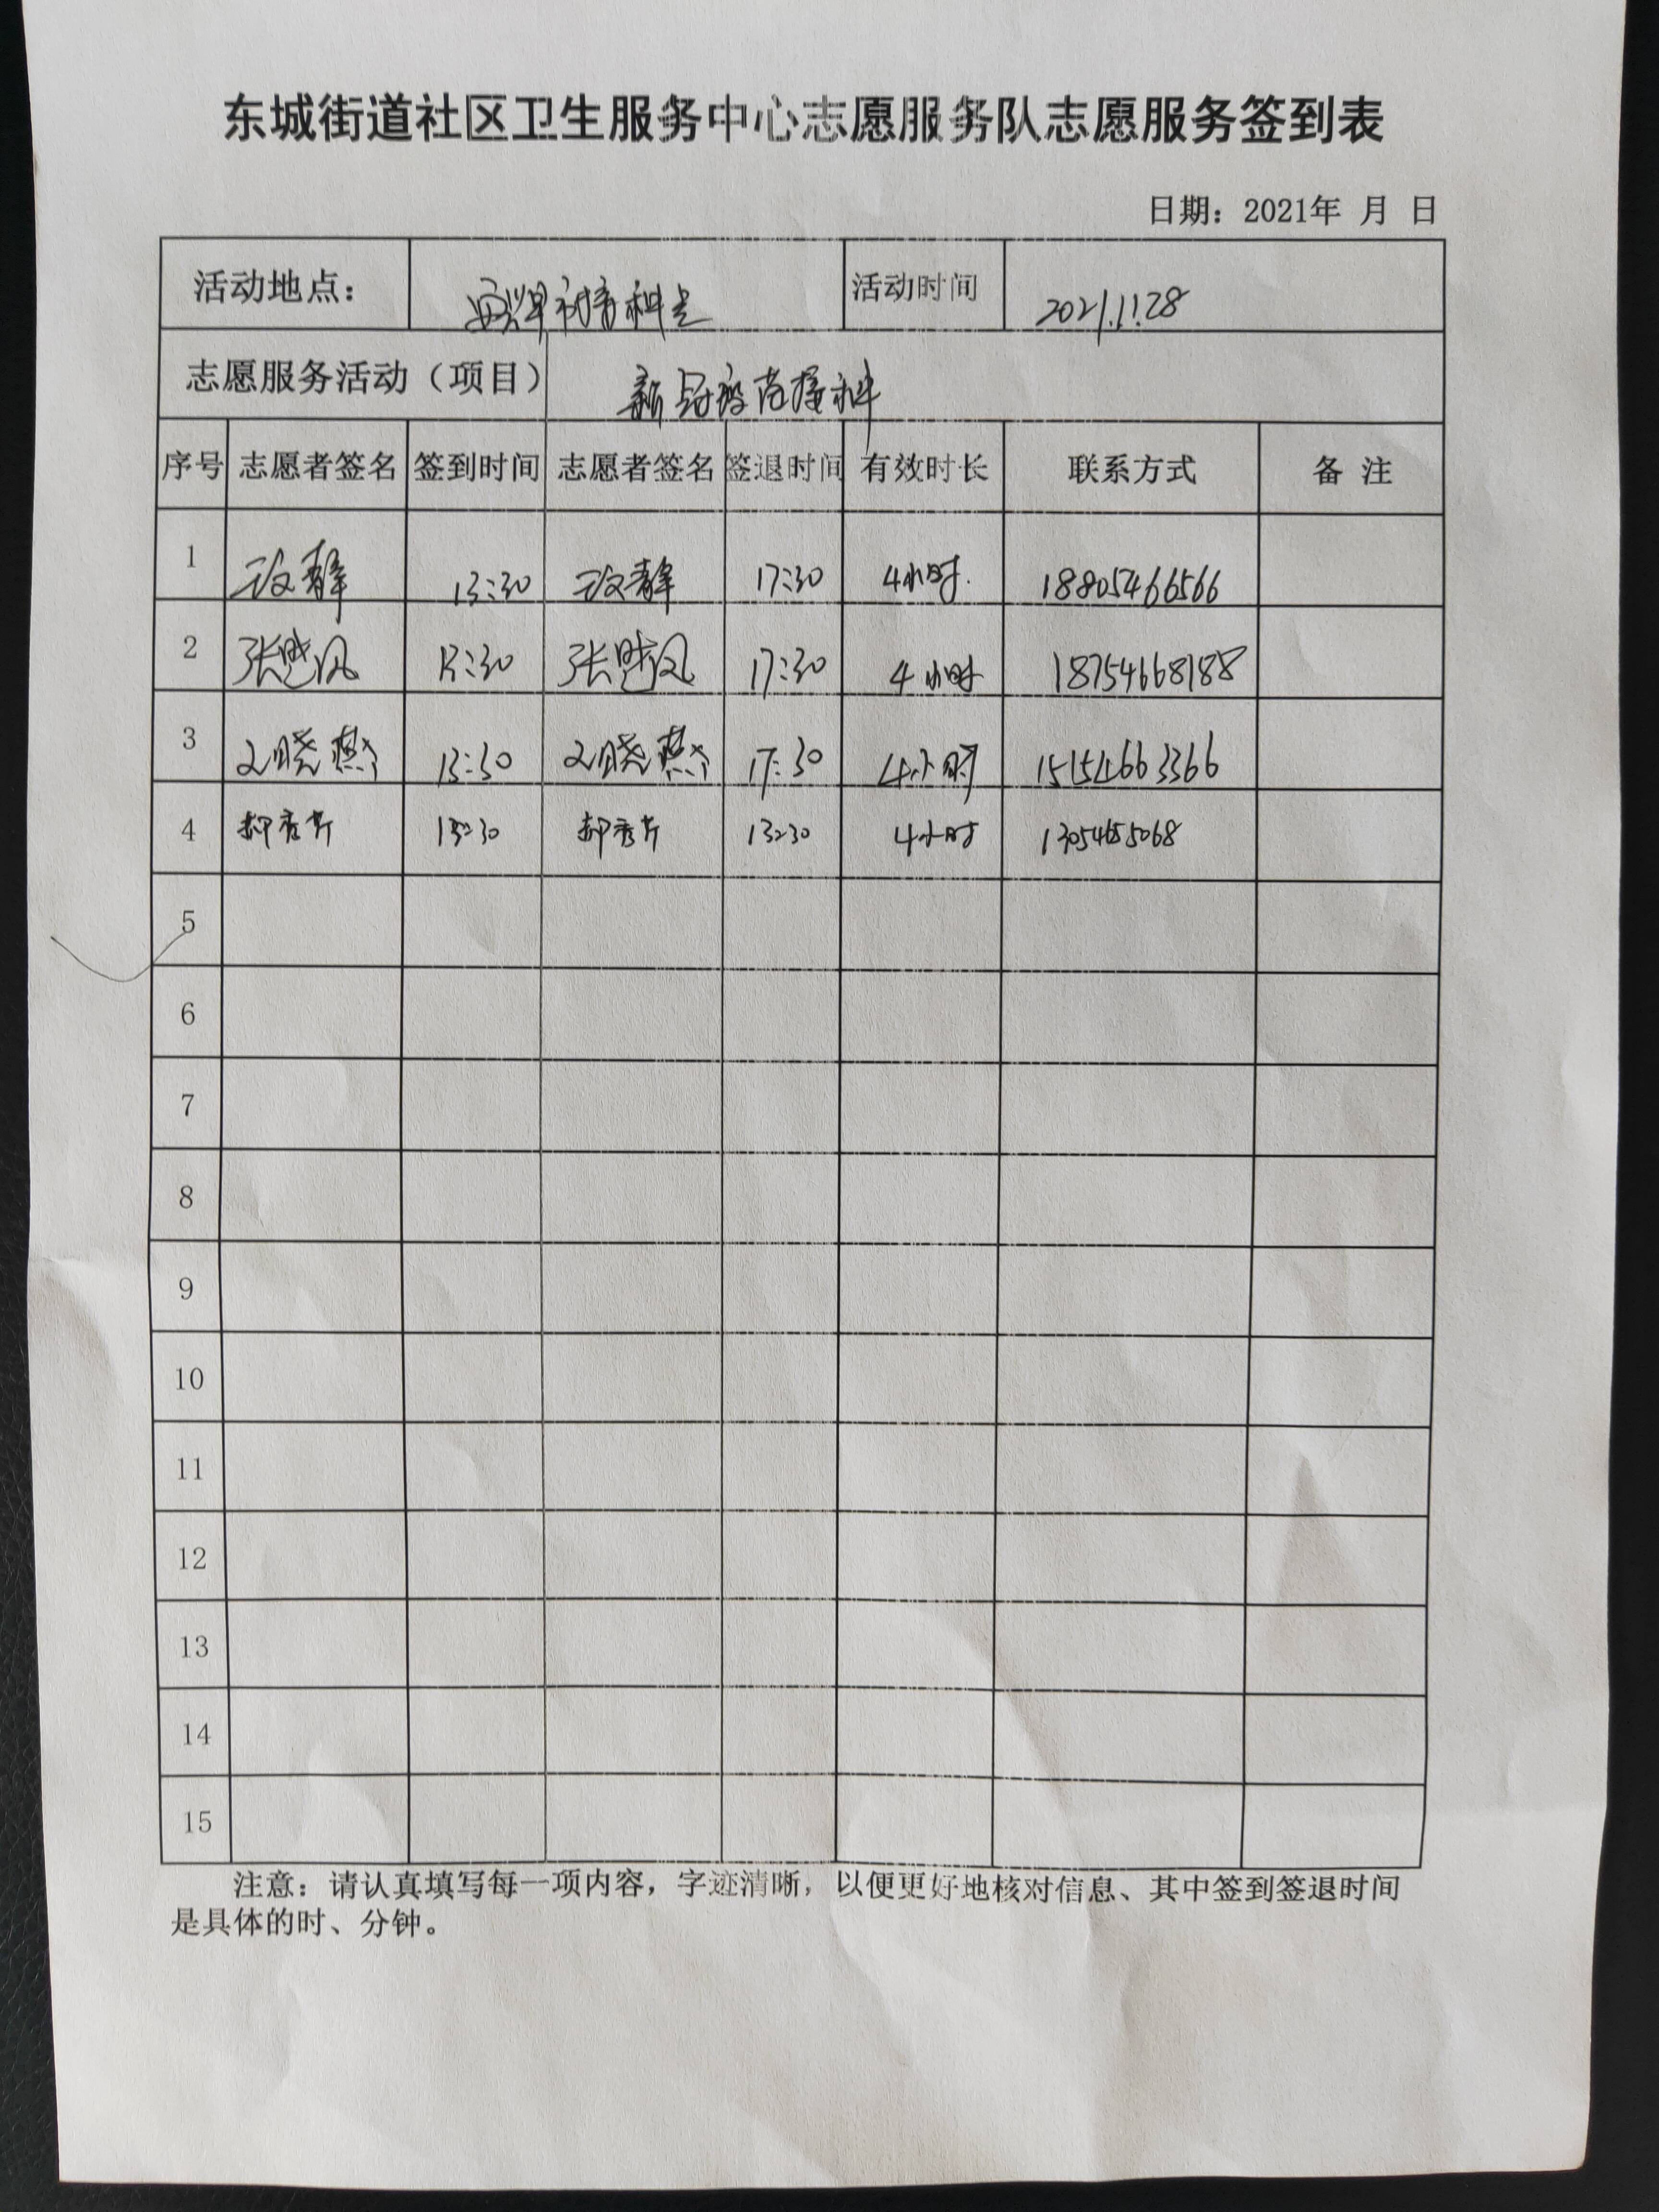 东城街道社区卫生服务中心志愿服务队志愿服务签到表
日期：2021年 月 日
活动地点： 活动时间 2021.11.28
志愿服务活动（项目） 新冠疫苗接种
序号 志愿者签名 签到时间 志愿者签名 签退时间 有效时长 联系方式 备 注
1 静 13:30 静 17:30 4小时. 18805466566
2 张 13:30 张 17:30 4小时 18754668188
3 晓燕 13:30 晓燕 17:30 4小时 15154663366
4 郝秀芹 13:30 郝秀芹 13:30 4小时
5
6
7
8
9
10
11
12
13
14
15
注意：请认真填写每一项内容，字迹清晰，以便更好地核对信息、其中签到签退时间
是具体的时、分钟。